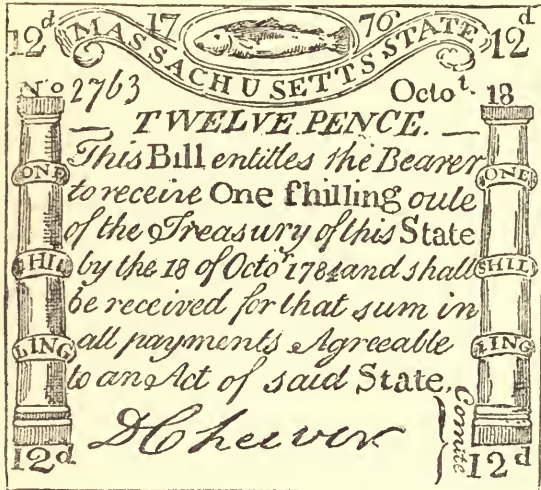 12d 17 76 12d
MASSACHUSETTS STATE
No 2763 Octot. 18
TWELVE PENCE.
This Bill entitles the Bearer
to receive One ſhilling oute
of the Treasury of this State
by the 18 of Octor 1784 and shall
be received for that sum in
all payments Agreeable
to an Act of said State,
DCheever
Comite
ONE
SHIL
LING
ONE
SHILL
LING
12d 12d